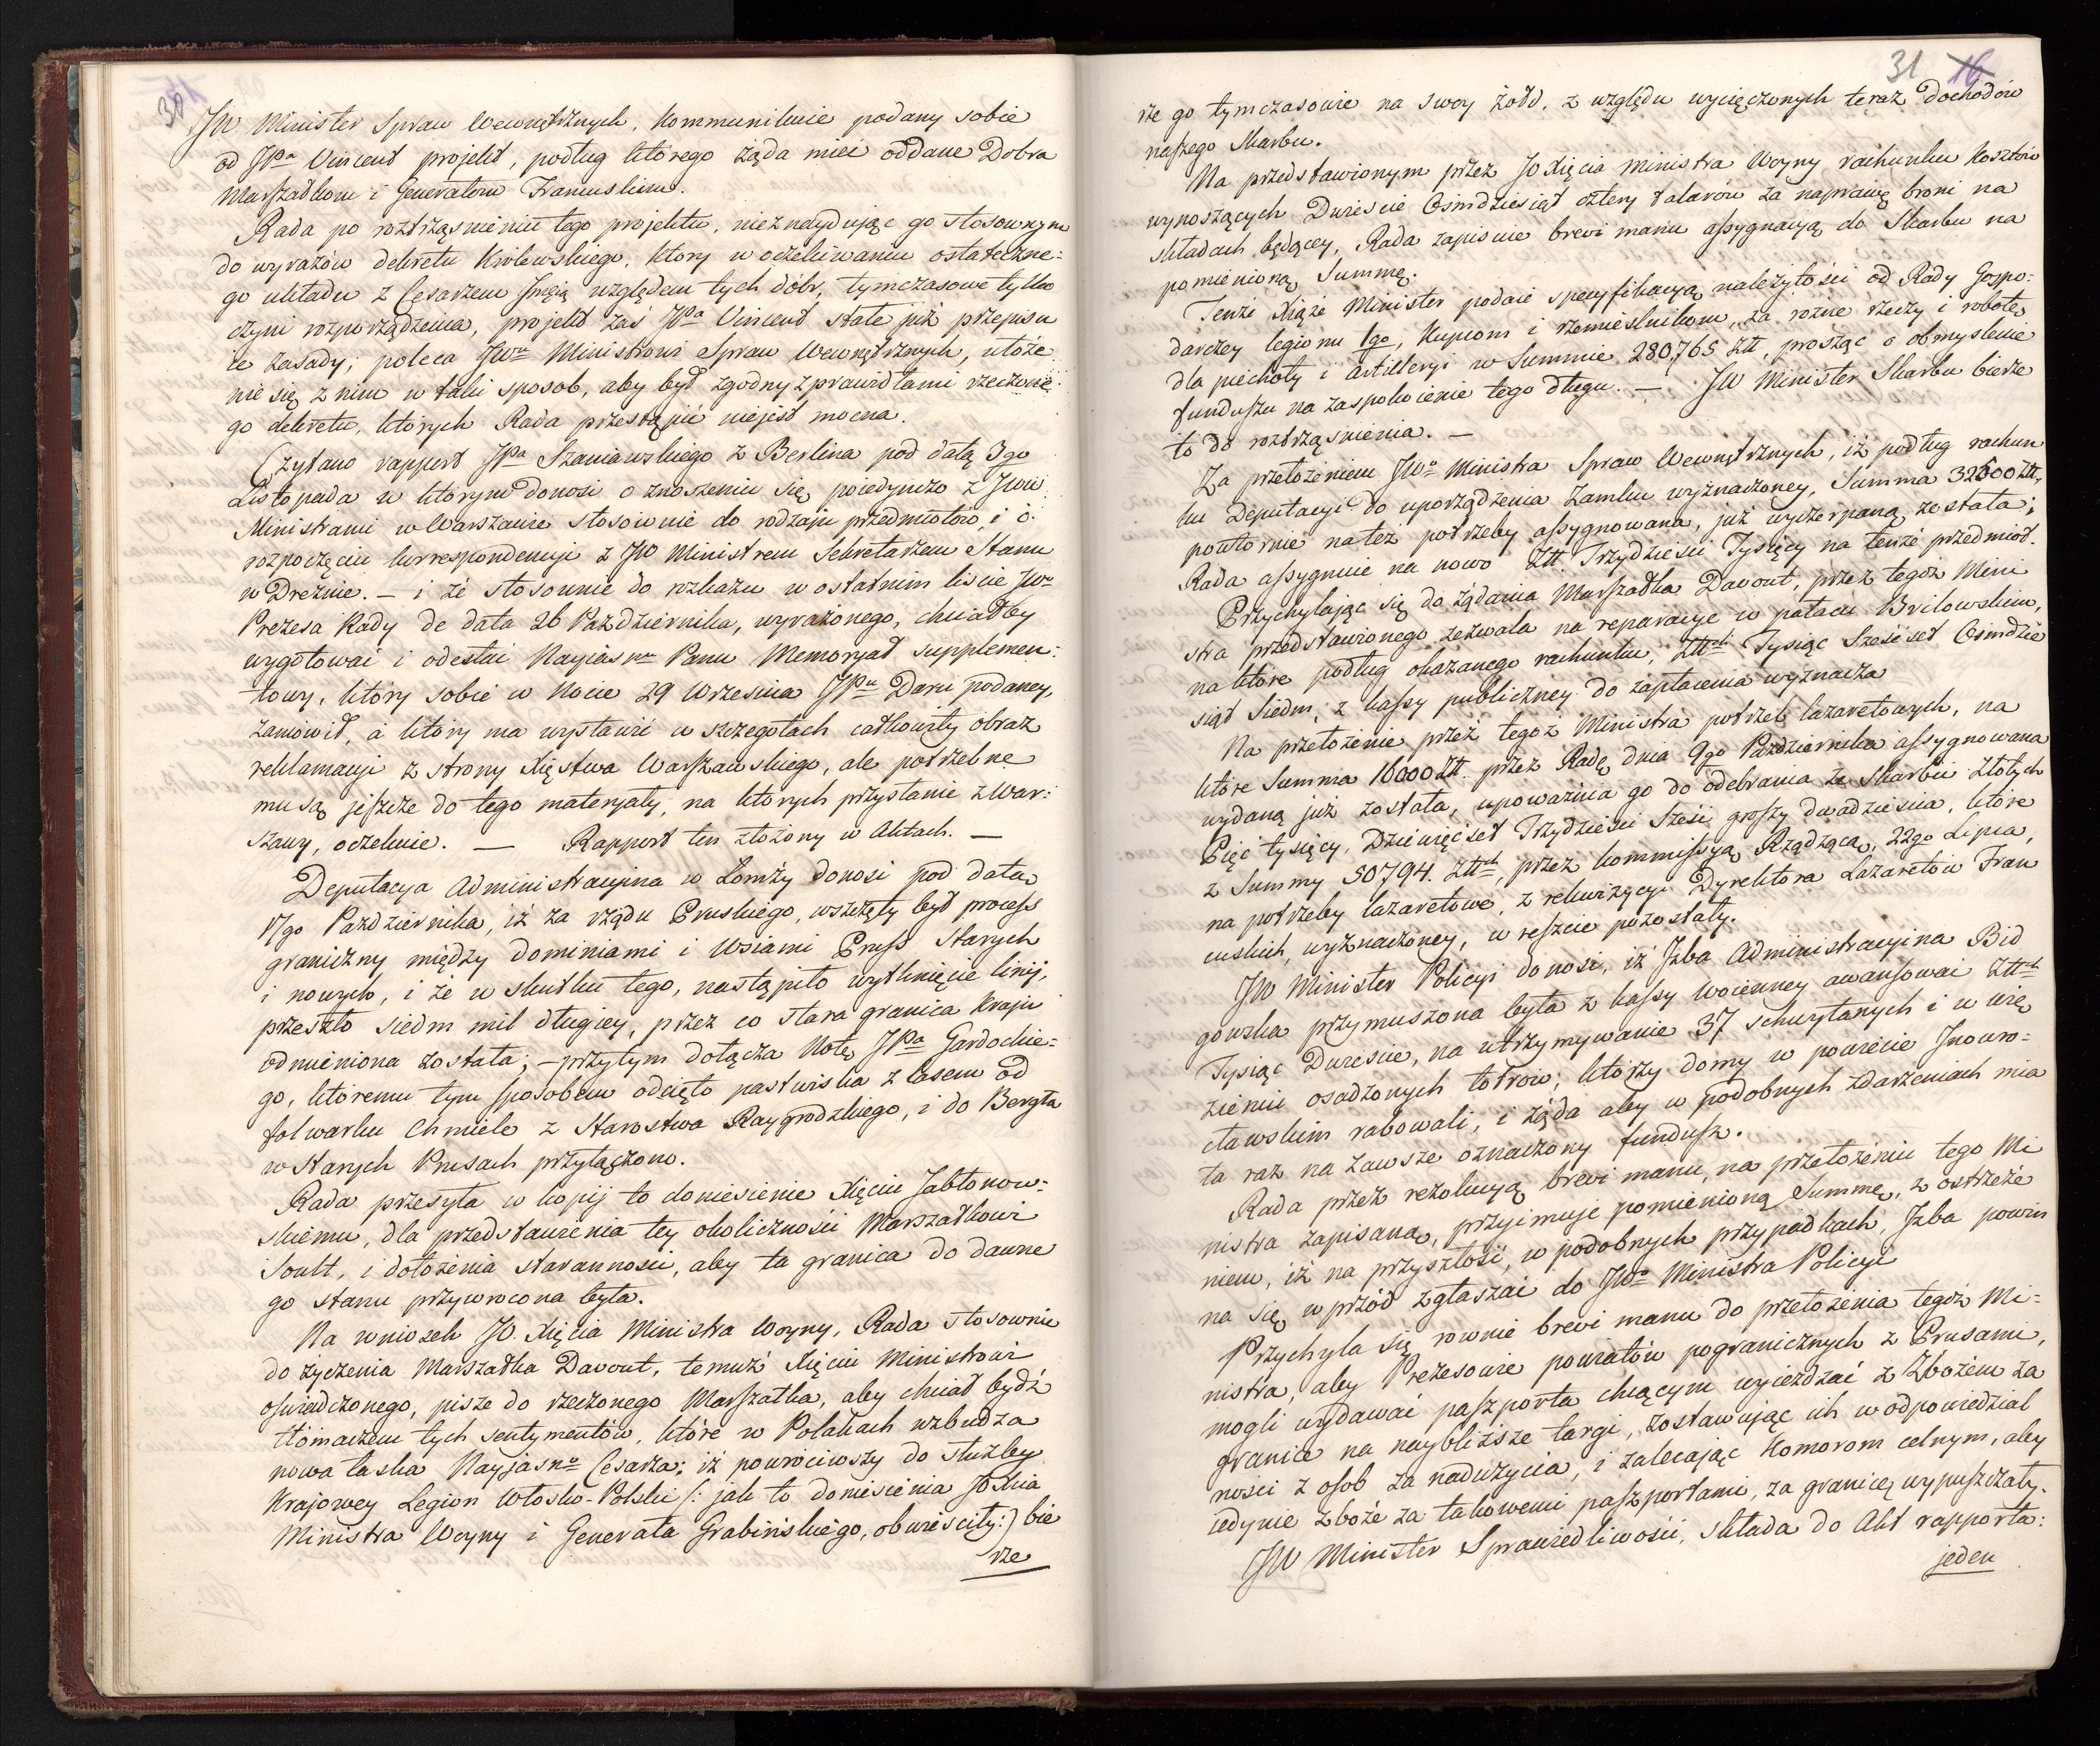 30
JW Minister Spraw Wewnętrznych, kommunikuie podany sobie
od JPa Vincent projekt, podług którego żąda mieć oddane Dobra
Marszałkom i Generałom Francuskim.
Rada po roztrząśnieniu tego projektu, nieznayduiąc go stosownym
do wyrazów dekretu Królewskiego, który w oczekiwaniu ostateczne=
go układu z Cesarzem Jmcią względem tych dóbr, tymczasowe tylko
czyni rozporządzenia, projekt zaś JPa Vincent stałe już przepisu
ie zasady; poleca JWu Ministrowi Spraw Wewnętrznych, ułoże
nie się z nim w taki sposob, aby był zgodny z prawidłami rzeczone
go dekretu, których Rada przestąpić niejest mocna.
Czytano rapport JPa Szaniawskiego z Berlina pod datą 3go
Listopada w którym donosi o znoszeniu się poiedynczo z JWW
Ministrami w Warszawie stosownie do rodzaju przedmiotow, i o
rozpoczęciu korrespondencyi z JW Ministrem Sekretarzem Stanu
w Dreźnie. — i że stosownie do rozkazu w ostatnim liście JWo
Prezesa Rady de data 26 Października, wyrażonego, chciałby
wygotować i odesłać Nayiasnu Panu Memoryał supplemen=
towy, który sobie w Nocie 29 Września JPu Daru podaney,
zamówił, a który ma wystawić w szczegółach całkowity obraz
reklamacyi z strony Xięstwa Warszawskiego, ale potrzebne
mu są jeszcze do tego materyały, na których przysłanie z War=
szawy, oczekuie. — Rapport ten złożony w Aktach. —
Deputacya Administracyina w Łomży donosi pod datą
17go Października, iż za rządu Pruskiego, wszczęty był process
graniczny między dominiami i Wsiami Pruss Starych
i nowych, i że w skutku tego, nastąpiło wytknięcie linij,
przeszło siedm mil długiey, przez co stara granica kraju
odmieniona została; — przytym dołącza Notę JPa Gardockie=
go, któremu tym sposobem odcięto pastwiska z lasem od
folwarku Chmiele z Starostwa Raygrodzkiego, i do Bergta
w Starych Prusach przyłączono.
Rada przesyła w kopij to doniesienie Xięciu Jabłonow=
skiemu, dla przedstawienia tey okoliczności Marszałkowi
Soult, i dołożenia starannosci, aby ta granica do dawne
go stanu przywrocona była.
Na wniosek JO. Xięcia Ministra Woyny, Rada stosownie
do życzenia Marszałka Davout, temuż Xięciu Ministrowi
oświadczonego, pisze do rzeczonego Marszałka, aby chciał bydź
tłómaczem tych sentymentów, które w Polakach wzbudza
nowa łaska Nayjasno Cesarza; iż powróciwszy do służby
Krajowey Legion Włosko-Polski (: jak to doniesienia JO Xcia
Ministra Woyny i Generała Grabińskiego, obwieściły :) bie
rze
31 16
rze go tymczasowie na swoy żołd, z względu wycięczonych teraz dochodów
naszego Skarbu.
Na przedstawionym przez JO Xięcia Ministra Woyny rachunku kosztów
wynoszących Dwieście Ośmdziesiąt cztery talarów za naprawę broni na
składach będącey, Rada zapisuie brevi manu assygnacyą do Skarbu na
pomienioną Summę.
Tenże Xiąże Minister podaie specyfikacyą należytości od Rady Gospo=
darczey legionu 1go, Kupcom i rzemieślnikom, za rożne rzeczy i robotę
dla piechoty i artilleryi w Summie 280,765 Ztt, prosząc o obmyślenie
funduszu na zaspokoienie tego długu. — JW Minister Skarbu bierze
to do roztrząśnienia. —
Za przełożeniem JWo Ministra Spraw Wewnętrznych, iż podług rachun
ku Deputacyi do uporządzenia Zamku wyznaczoney, Summa 32600 Ztt,
powtornie na też potrzeby assygnowana, już wyczerpaną została;
Rada assygnuie na nowo Ztt. Trzydzieści Tysięcy na tenże przedmiot.
Przychylając się do żądania Marszałka Davout, przez tegoż Mini
stra przedstawionego zezwala na reparacye w pałacu Brilowskim,
na które podług okazanego rachunku, Zttch Tysiąc Sześćset Ośmdzie
siąt Siedm, z kassy publiczney do zapłacenia wyznacza
Na przełożenie przez tegoż Ministra potrzeb lazaretowych, na
które Summa 16000 Ztt. przez Radę dnia 9go Października assygnowana
wydaną już została, upoważnia go do odebrania ze Skarbu Złotych
Pięć tysięcy, Dziewięćset Trzydzieści Sześć groszy dwadzieścia, które
z Summy 50794. Zttch, przez kommissyą Rządzącą, 22go Lipca,
na potrzeby lazaretowe, z rekwizycyi Dyrektora Lazaretow Fran
cuskich, wyznaczoney, w reszcie pozostały.
JW Minister Policyi donosi, iż Izba Administracyina Bid
gowska przymuszona była z kassy woienney awansować Zttch
Tysiąc Dwieście, na utrzymywanie 37 schwytanych i w wię
zieniu osadzonych łotrow, którzy domy w powiecie Inowro=
cławskim rabowali, i żąda aby w podobnych zdarzeniach mia
ła raz na zawsze oznaczony fundusz.
Rada przez rezolucyą brevi manu, na przełożeniu tego Mi
nistra zapisaną, przyimuje pomienioną Summę, z ostrzeże
niem, iż na przyszłość, w podobnych przypadkach, Izba powin
na się w przód zgłaszać do JWo Ministra Policyi
Przychyla się rownie brevi manu do przełożenia tegoż Mi=
nistra, aby Prezesowie powiatów pogranicznych z Prusami,
mogli wydawać paszporta chcącym wyieżdzać z Zbożem za
granice na naybliższe targi, zostawując ich w odpowiedzial
ności z osob za nadużycia, i zalecając Komorom celnym, aby
iedynie zboże za takowemi paszportami, za granicę wypuszczały.
JW Minister Sprawiedliwości, składa do Akt rapporta:
jeden